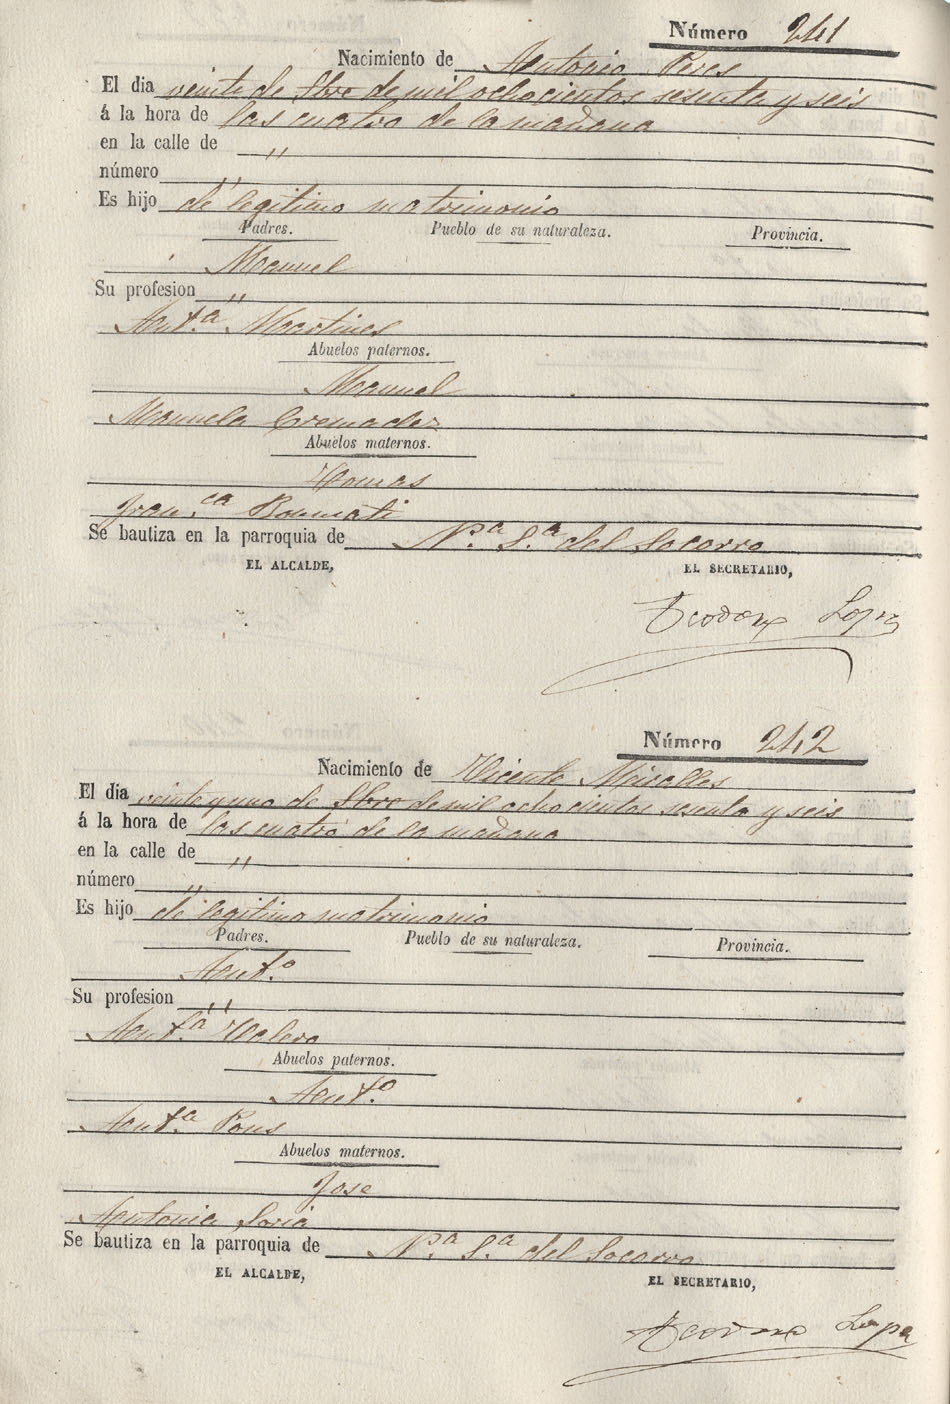 Número 241
Nacimiento de Antonio Peres
El dia veinte de 8bre de mil ochocientos sesenta y seis
á la hora de las cuatro de la mañana
en la calle de "
número "
Es hijo de legitimo matrimonio
Padres. Pueblo de su naturaleza. Provincia.
Manuel
Su profesion "
Ant.a Martines
Abuelos paternos.
Manuel
Manuela Cremadez
Abuelos maternos.
Tomas
Fran.ca Bonmati
Se bautiza en la parroquia de N.a S.a del Socorro
EL ALCALDE, EL SECRETARIO,
Teodoro Lopez
Número 242
Nacimiento de Vicente Miralles
El dia veinte y uno de 8bre de mil ochocientos sesenta y seis
á la hora de las cuatro de la mañana
en la calle de "
número "
Es hijo de legitimo matrimonio
Padres. Pueblo de su naturaleza. Provincia.
Ant.o
Su profesion "
Ant.a Valero
Abuelos paternos.
Ant.o
Ant.a Pons
Abuelos maternos.
Jose
Antonia Soria
Se bautiza en la parroquia de N.a S.a del Socorro
EL ALCALDE, EL SECRETARIO,
Teodoro Lopez